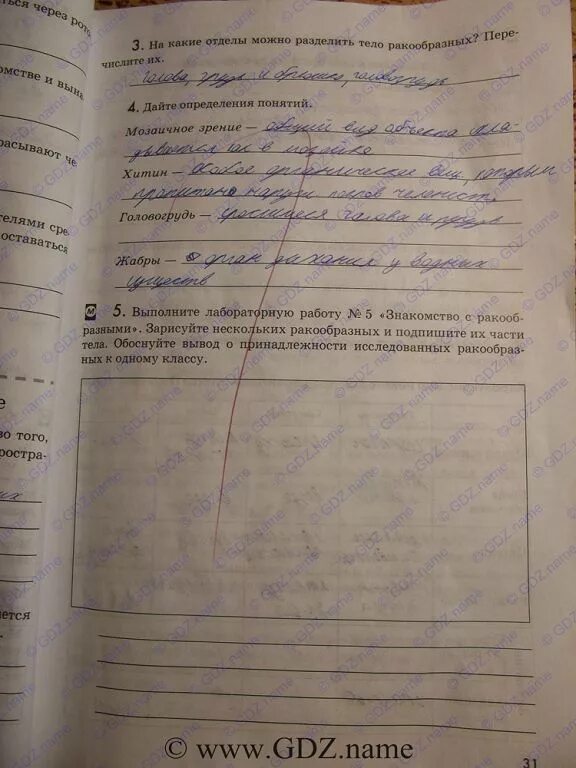 ться через рото
омстве и вына
расывают че
телями сре
оставаться
е
во того,
ростра-
ется
3. На какие отделы можно разделить тело ракообразных? Пере-
числите их.
Голова, грудь и брюшко, головогрудь
4. Дайте определения понятий.
Мозаичное зрение — общий вид объекта скла-
дывается как в мозайке
Хитин — особое органическое вещ, которым
пропитано наружи покров членист.
Головогрудь — сросшиеся голова и грудь
Жабры — орган дыхания у водных
существ
М 5. Выполните лабораторную работу № 5 «Знакомство с ракооб-
разными». Зарисуйте нескольких ракообразных и подпишите их части
тела. Обоснуйте вывод о принадлежности исследованных ракообраз-
ных к одному классу.
31
© www.GDZ.name